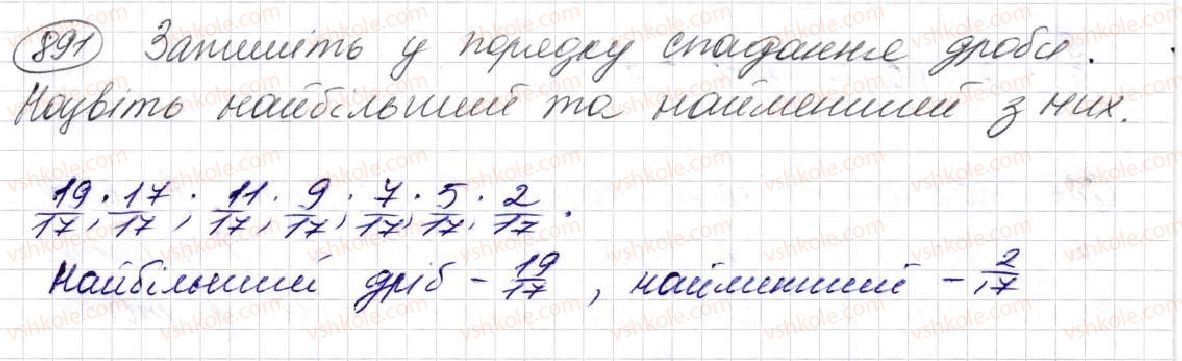 891 Запишіть у порядку спадання дроби.
Назвіть найбільший та найменший з них.
19/17; 17/17; 11/17; 9/17; 7/17; 5/17; 2/17.
Найбільший дріб - 19/17, найменший - 2/17
vshkole.com